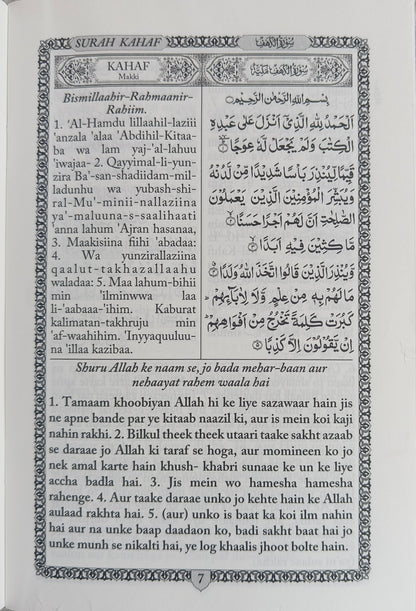 SURAH KAHAF
سُوْرَةُ الْكَهْفِ
KAHAF
Makki
Bismillaahir-Rahmaanir-
Rahiim.
1. 'Al-Handu lillaahil-laziii
'anzala 'alaa 'Abdihil-Kitaa-
ba wa lam yaj-'al-lahuu
'iwajaa- 2. Qayyimal-li-yun-
zira Ba'-san-shadiidam-mil-
ladunhu wa yubash-shi-
ral-Mu'-minii-nallaziina
ya'-maluuna-s-saalihaati
'anna lahum 'Ajran hasanaa,
3. Maakisiina fiihi 'abadaa:
4. Wa yunzirallaziina
qaalut-takhazallaahu
waladaa: 5. Maa lahum-bihii
min 'ilminwwa laa
li-'aabaaa-'ihim. Kaburat
kalimatan-takhruju min
'af-waahihim. 'Inyyaquuluu-
na 'illaa kazibaa.
بِسْمِ اللّٰهِ الرَّحْمٰنِ الرَّحِيْمِ
اَلْحَمْدُ لِلّٰهِ الَّذِيْٓ اَنْزَلَ عَلٰى عَبْدِهِ
الْكِتٰبَ وَلَمْ يَجْعَلْ لَّهٗ عِوَجًا ۱
قَيِّمًا لِّيُنْذِرَ بَاْسًا شَدِيْدًا مِّنْ لَّدُنْهُ
وَيُبَشِّرَ الْمُؤْمِنِيْنَ الَّذِيْنَ يَعْمَلُوْنَ
الصّٰلِحٰتِ اَنَّ لَهُمْ اَجْرًا حَسَنًا ۲
مَّاكِثِيْنَ فِيْهِ اَبَدًا ۳
وَّيُنْذِرَ الَّذِيْنَ قَالُوا اتَّخَذَ اللّٰهُ وَلَدًا ۴
مَا لَهُمْ بِهٖ مِنْ عِلْمٍ وَّلَا لِاٰبَآئِهِمْ ؕ
كَبُرَتْ كَلِمَةً تَخْرُجُ مِنْ اَفْوَاهِهِمْ ؕ
اِنْ يَّقُوْلُوْنَ اِلَّا كَذِبًا ۵
Shuru Allah ke naam se, jo bada mehar-baan aur
nehaayat rahem waala hai
1. Tamaam khoobiyan Allah hi ke liye sazawaar hain jis
ne apne bande par ye kitaab naazil ki, aur is mein koi kaji
nahin rakhi. 2. Bilkul theek theek utaari taake sakht azaab
se daraae jo Allah ki taraf se hoga, aur momineen ko jo
nek amal karte hain khush- khabri sunaae ke un ke liye
accha badla hai. 3. Jis mein wo hamesha hamesha
rahenge. 4. Aur taake daraae unko jo kehte hain ke Allah
aulaad rakhta hai. 5. (aur) unko is baat ka koi ilm nahin
hai aur na unke baap daadaon ko, badi sakht baat hai jo
unke munh se nikalti hai, ye log khaalis jhoot bolte hain.
7